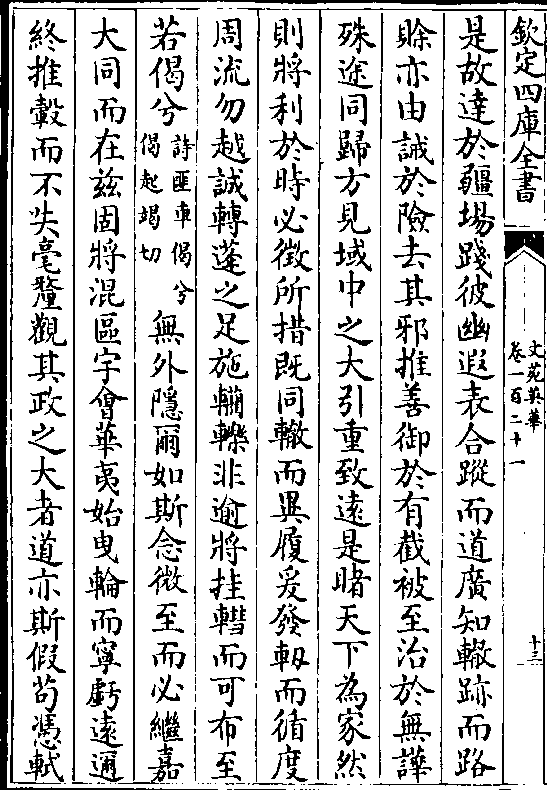 欽定四庫全書
文苑英華
卷一百二十一
十三
是故達於疆埸踐彼幽遐表合蹤而道廣知轍跡而路
賒亦由誠於險去其邪推善御於有截被至治於無譁
殊途同歸方見域中之大引重致遠是睹天下為家然
則將利於時必徵所措既同轍而異履爰發軔而循度
周流勿越誠轉蓬之足施轥轢非逾將挂轊而可布至
若偈兮
詩匪車偈兮
偈起竭切
無外隱爾如斯念微至而必繼嘉
大同而在兹固將混區宇會華夷始曳輪而寧虧遠邇
終推轂而不失毫釐觀其政之大者道亦斯假茍憑軾